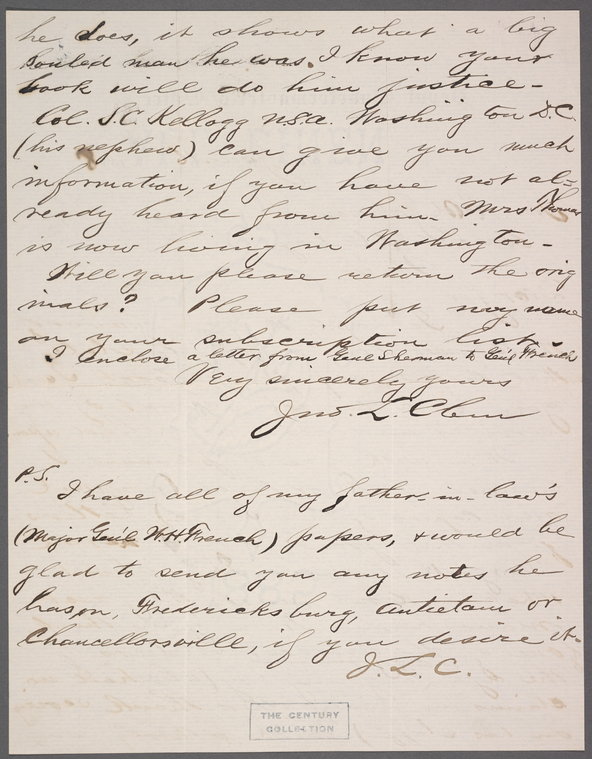 he does, it shows what a big
souled man he was. I know your
book will do him justice -
Col. S.C. Kellogg U.S.A. Washington D.C.
(his nephew) can give you much
information, if you have not al=
ready heard from him - Mrs Thomas
is now living in Washington -
Will you please return the orig
inals? Please put my name
on your subscription list.
I enclose a letter from Gen'l Sherman to Gen'l French
Very sincerely yours
Jno. L. Clem
P.S.
I have all of my father-in-law's
(Major Gen'l W.H. French) papers, & would be
glad to send you any notes he
has on, Fredericksburg, Antietam or
Chancellorsville, if you desire it -
J. L. C.
THE CENTURY
COLLECTION